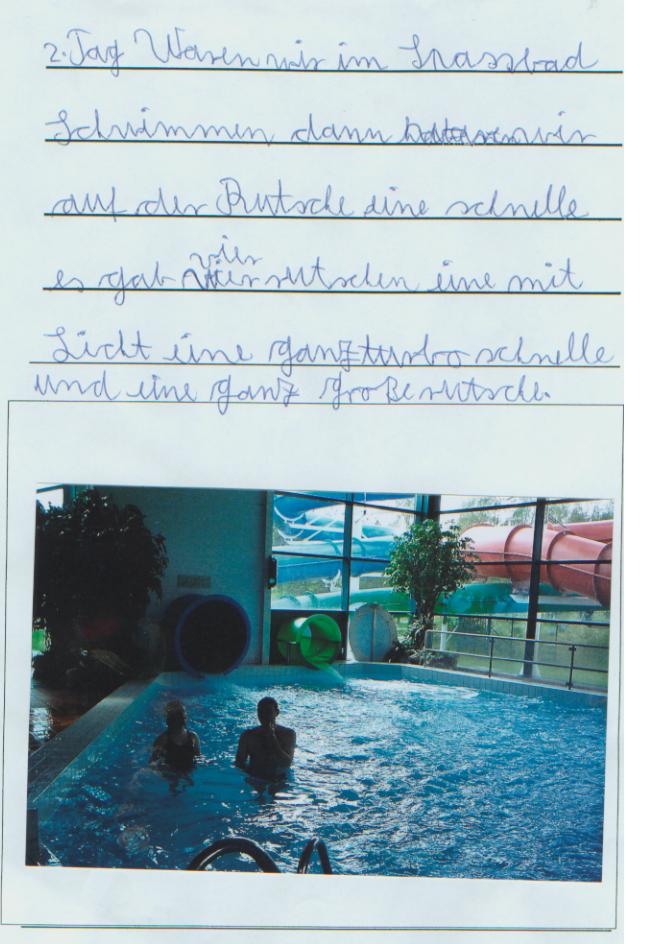 2. Tag Waren wir im Spassbad
Schwimmen dann wir
auf der Rutsche eine schnelle
es gab vier rutschen eine mit
Licht eine ganz turbo schnelle
und eine ganz große rutsche.